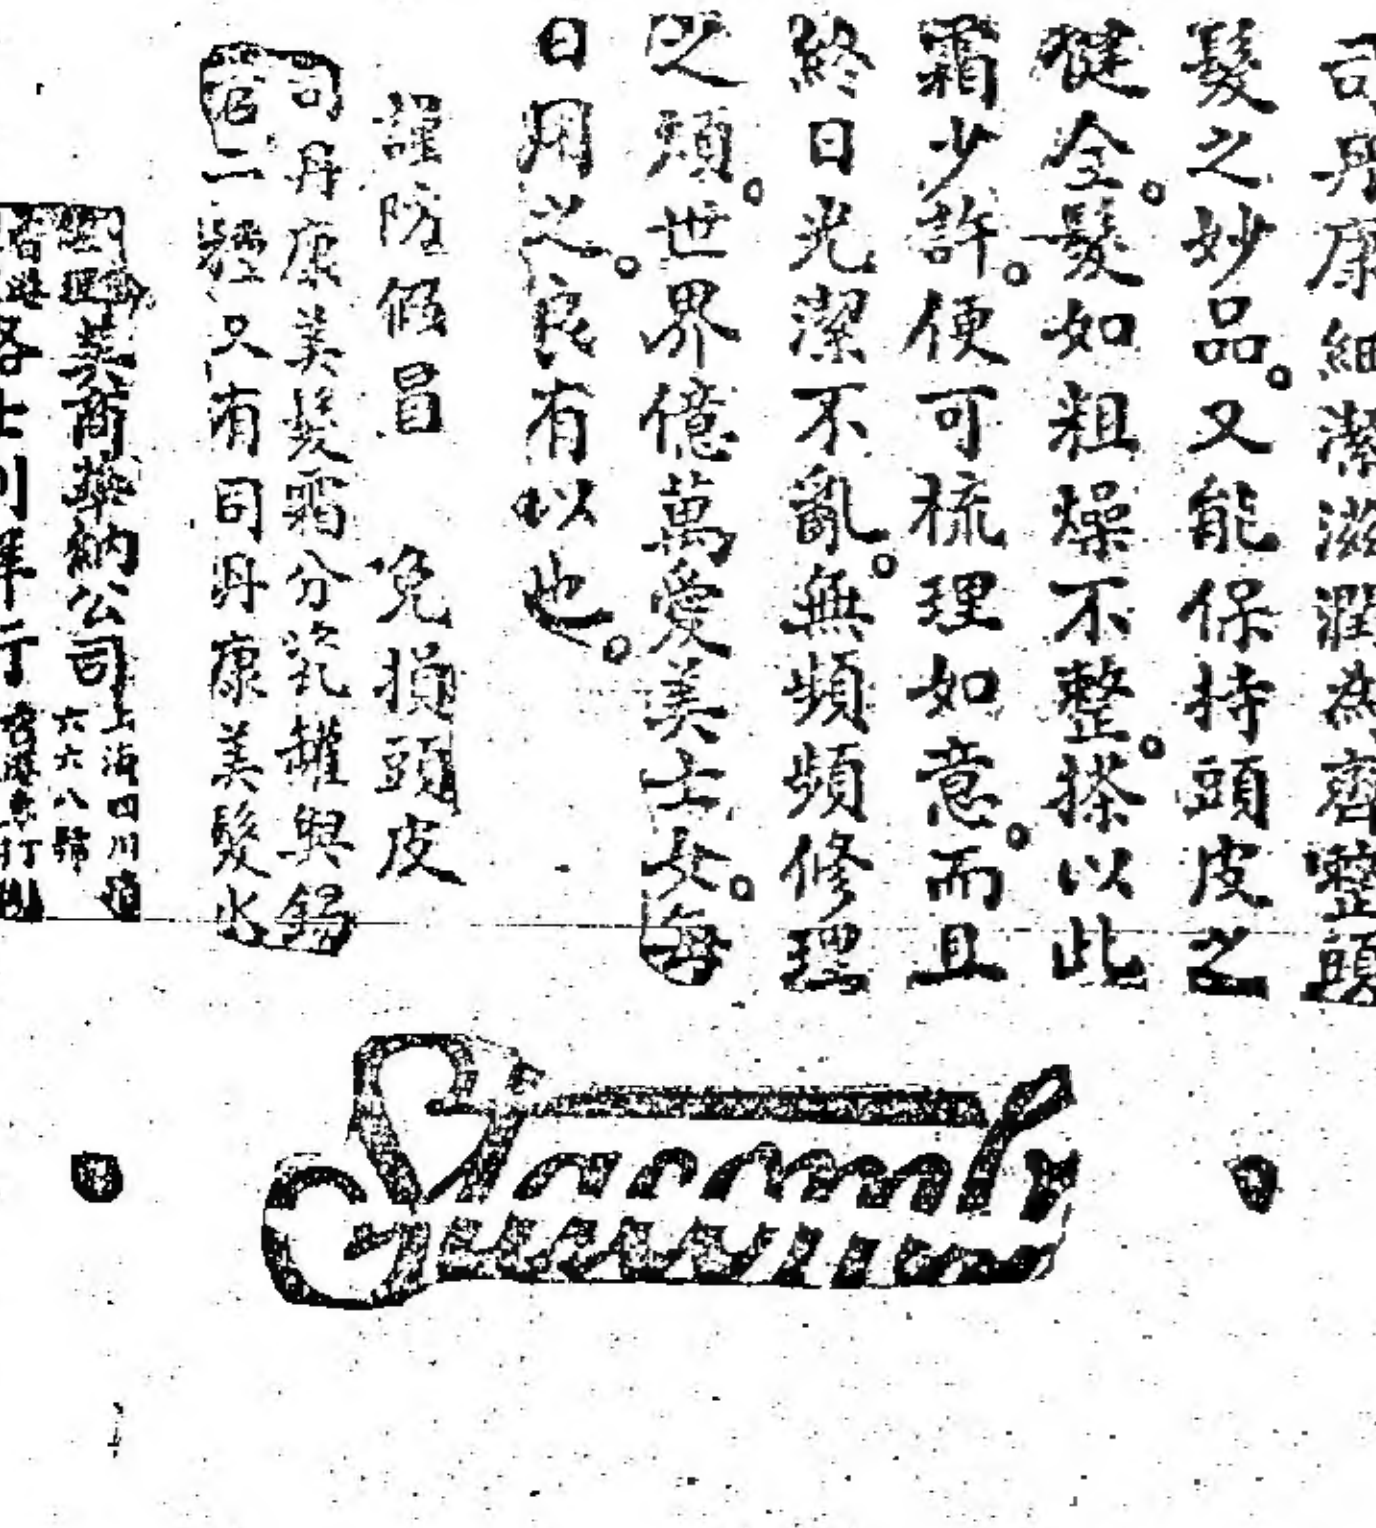 司丹康細潔滋潤為齊整頭
髮之妙品。又能保持頭皮之
健全。髮如粗燥不整。搽以此
霜少許。便可梳理如意。而且
終日光潔不亂。無頻頻修理
之煩。世界億萬愛美士女。每
日用之。良有以也。
謹防假冒 免損頭皮
司丹康美髮霜分瓷罐與錫
管二種又有司丹康美髮水
美商華納公司上海四川路
六六八號
Stacomb